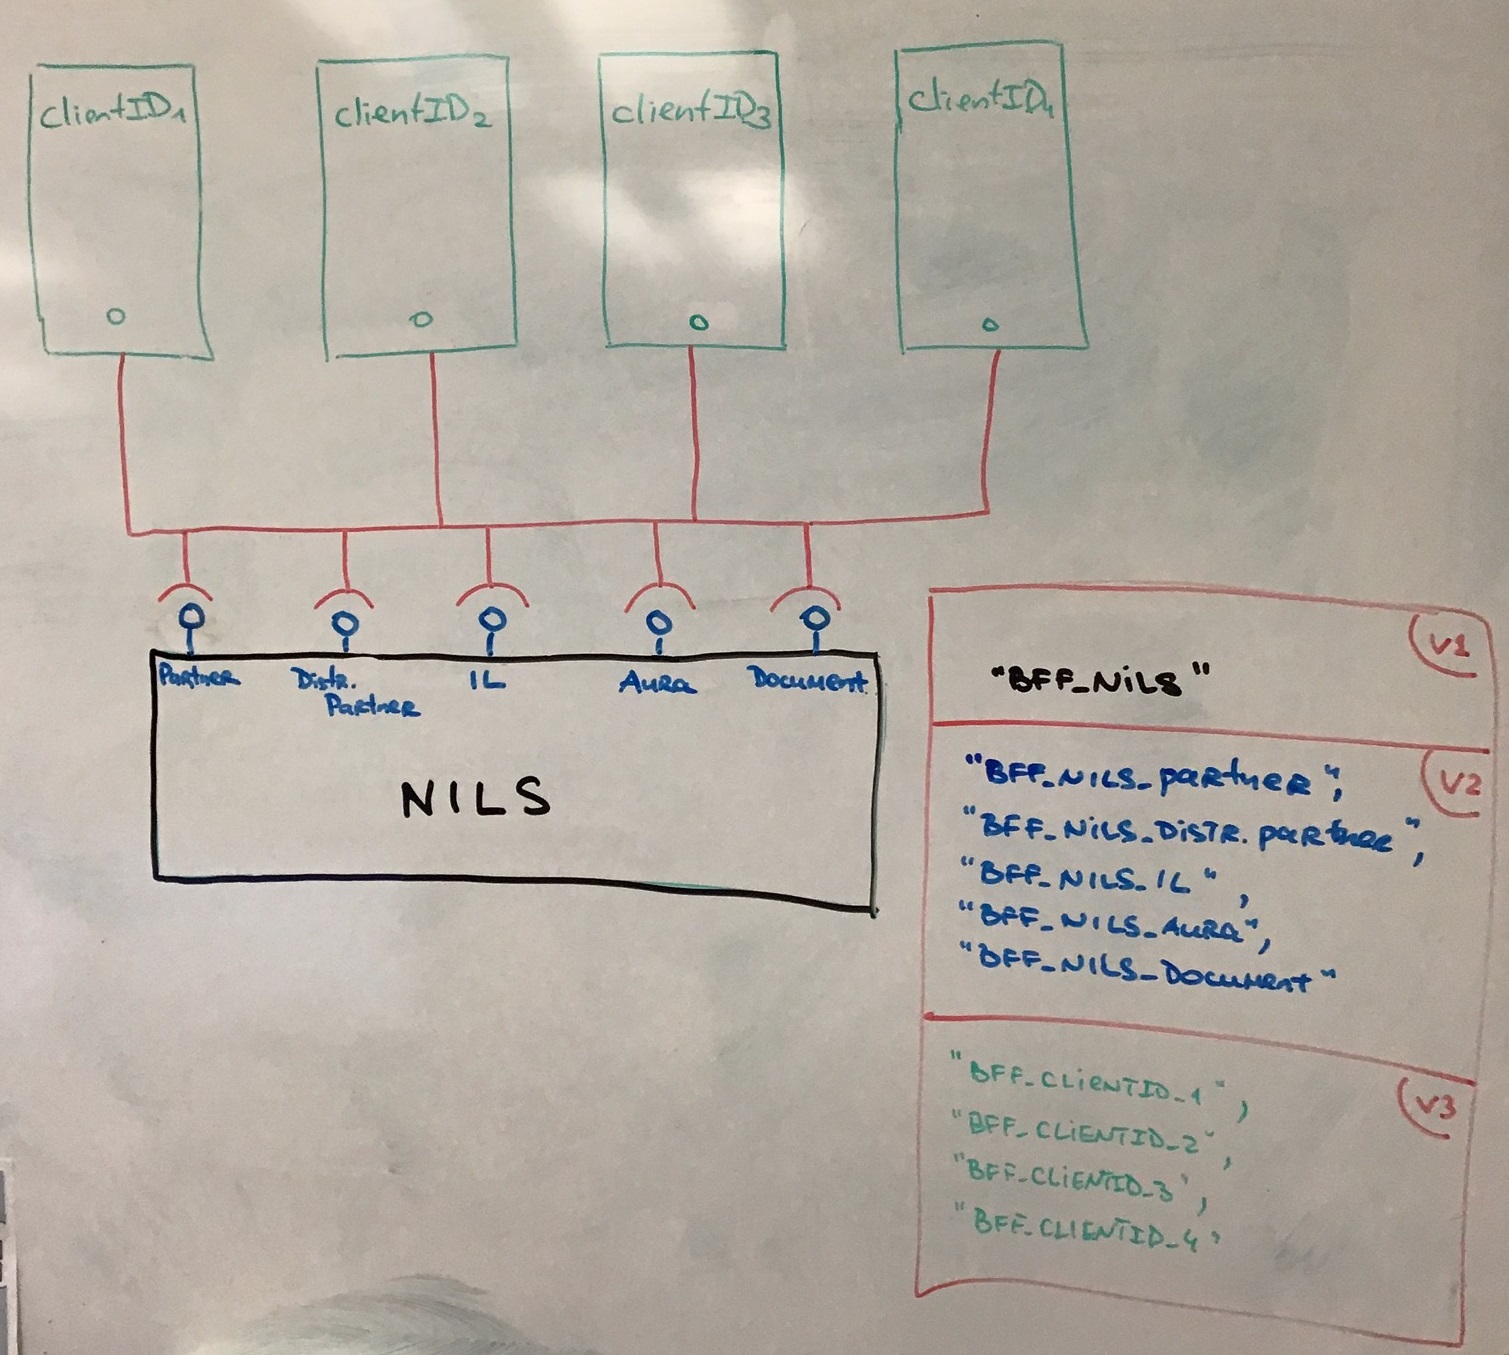 clientID1
clientID2
clientID3
clientID4
Partner
Distr.
Partner
IL
Aura
Document
NILS
V1
"BFF_NiLS"
V2
"BFF_NILS_partner",
"BFF_NiLS_DiSTR.partner",
"BFF_NILS_IL",
"BFF_NILS_Aura",
"BFF_NILS_Document"
V3
"BFF_CLiENTID_1",
"BFF_CLiENTID_2",
"BFF_CLiENTID_3",
"BFF_CLIENTID_4"